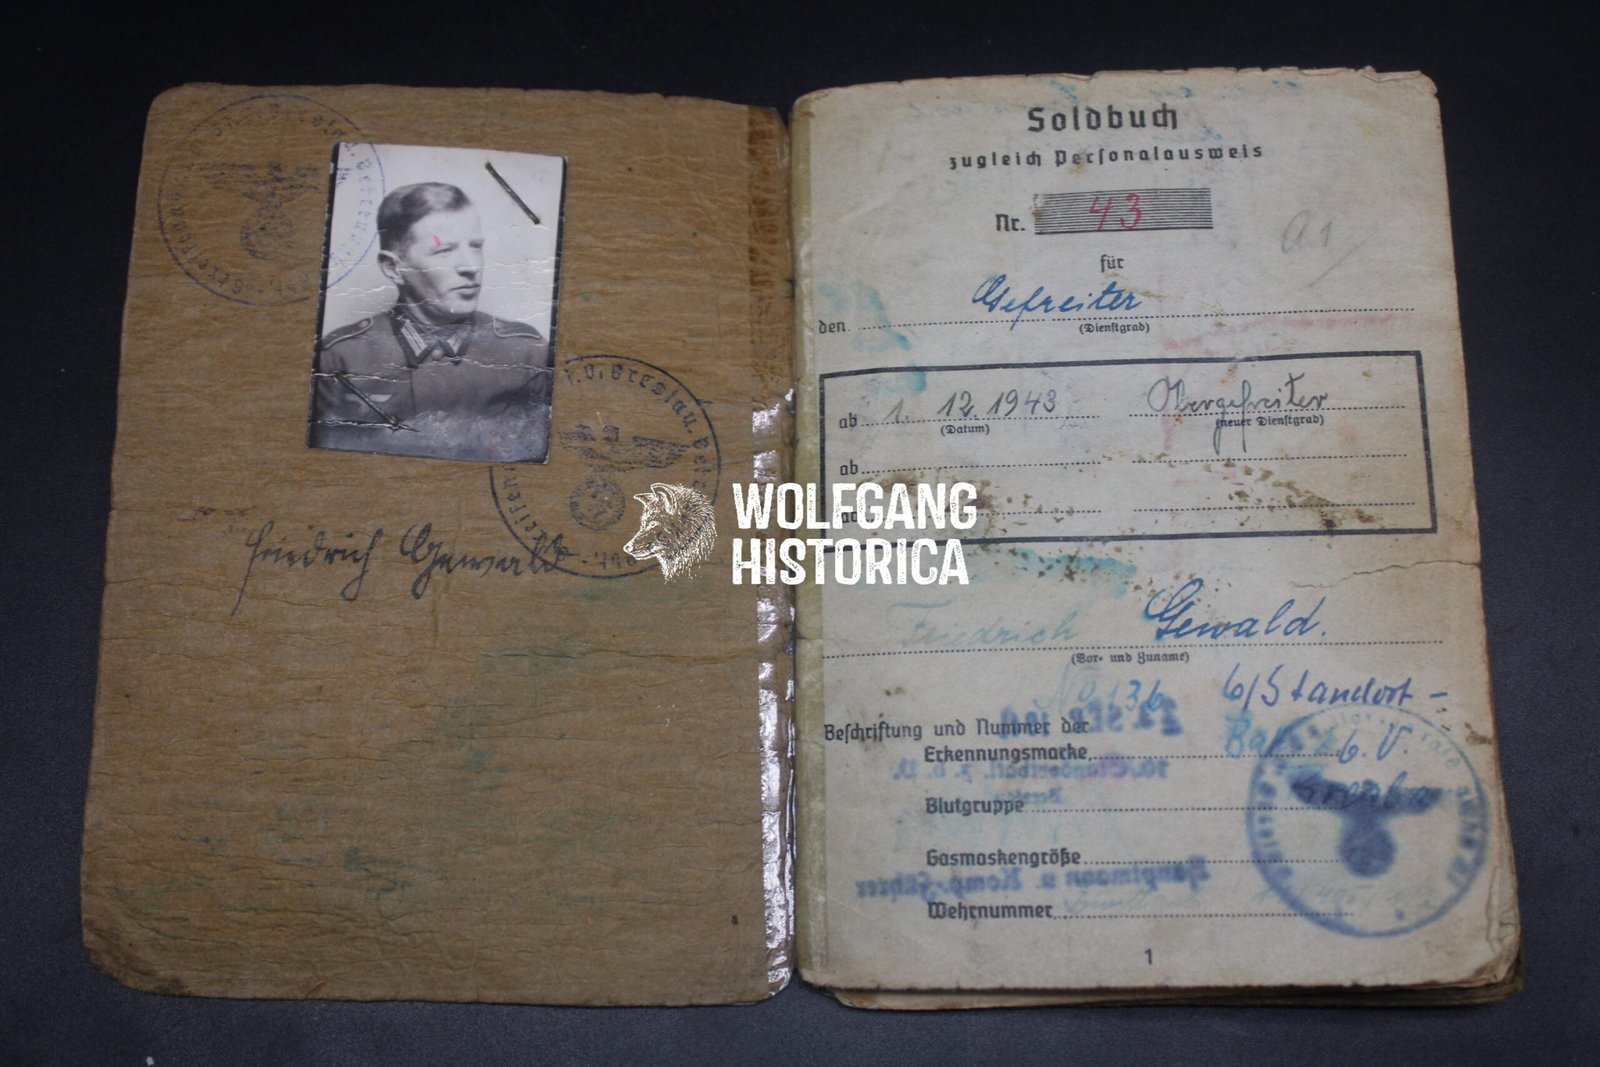 Friedrich Gewald
Soldbuch
zugleich Personalausweis
Nr. 43
a1
für
den Gefreiter
(Dienstgrad)
ab 1. 12. 1943 Obergefreiter
(Datum) (neuer Dienstgrad)
ab
WOLFGANG
HISTORICA
Friedrich Gewald.
(Vor- und Zuname)
No 136 6/Standort-
Beschriftung und Nummer der
Erkennungsmarke, Batl. z.b.V.
Blutgruppe
Gasmaskengröße
Wehrnummer
1